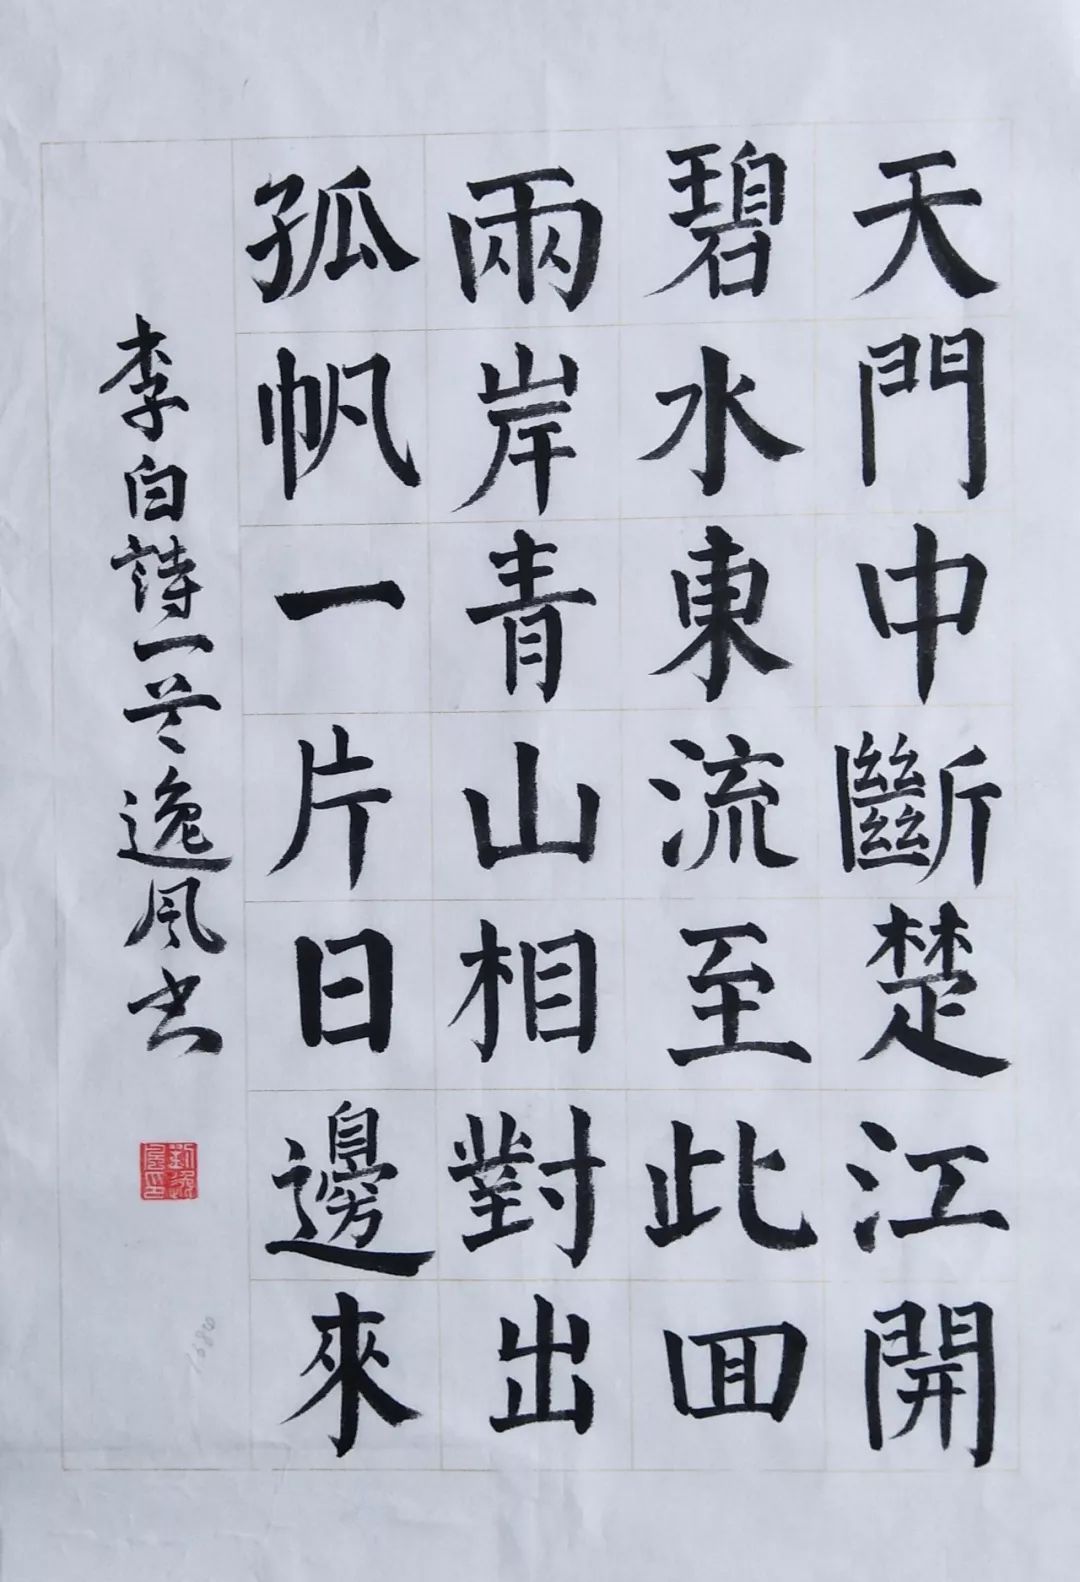 天門中斷楚江開
碧水東流至此回
兩岸青山相對出
孤帆一片日邊來
李白詩一首逸風書